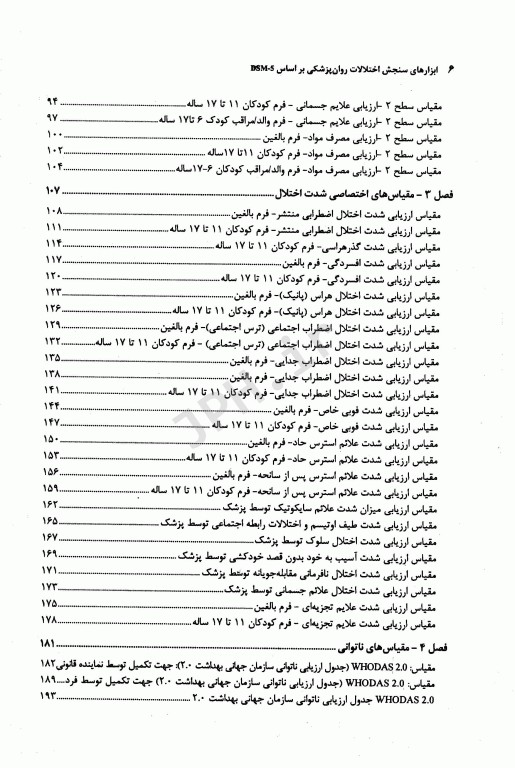 ۶ ابزارهای سنجش اختلالات روان‌پزشکی بر اساس DSM-5
مقیاس سطح ۲ -ارزیابی علایم جسمانی - فرم کودکان ۱۱ تا ۱۷ ساله ........ ۹۴
مقیاس سطح ۲ -ارزیابی علایم جسمانی - فرم والد/مراقب کودک ۶ تا۱۷ ساله ........ ۹۷
مقیاس سطح ۲ -ارزیابی مصرف مواد- فرم بالغین ........ ۱۰۰
مقیاس سطح ۲ -ارزیابی مصرف مواد- فرم کودکان ۱۱تا ۱۷ساله ........ ۱۰۲
مقیاس سطح ۲ -ارزیابی مصرف مواد- فرم والد/مراقب کودکان ۶-۱۷ساله ........ ۱۰۴
فصل ۳ - مقیاس‌های اختصاصی شدت اختلال ........ ۱۰۷
مقیاس ارزیابی شدت اختلال اضطرابی منتشر- فرم بالغین ........ ۱۰۸
مقیاس ارزیابی شدت اختلال اضطرابی منتشر- فرم کودکان ۱۱ تا ۱۷ ساله ........ ۱۱۱
مقیاس ارزیابی شدت گذرهراسی- فرم کودکان ۱۱ تا ۱۷ ساله ........ ۱۱۴
مقیاس ارزیابی شدت افسردگی- فرم بالغین ........ ۱۱۷
مقیاس ارزیابی شدت افسردگی- فرم کودکان ۱۱ تا ۱۷ ساله ........ ۱۲۰
مقیاس ارزیابی شدت اختلال هراس (پانیک)- فرم بالغین ........ ۱۲۳
مقیاس ارزیابی شدت اختلال هراس (پانیک)- فرم کودکان ۱۱ تا ۱۷ ساله ........ ۱۲۶
مقیاس ارزیابی شدت اختلال اضطراب اجتماعی (ترس اجتماعی)- فرم بالغین ........ ۱۲۹
مقیاس ارزیابی شدت اختلال اضطراب اجتماعی (ترس اجتماعی) - فرم کودکان ۱۱ تا ۱۷ ساله ........ ۱۳۲
مقیاس ارزیابی شدت اختلال اضطراب جدایی- فرم بالغین ........ ۱۳۵
مقیاس ارزیابی شدت اختلال اضطراب جدایی- فرم بالغین ........ ۱۳۸
مقیاس ارزیابی شدت اختلال اضطراب جدایی- فرم کودکان ۱۱ تا ۱۷ ساله ........ ۱۴۱
مقیاس ارزیابی شدت فوبی خاص- فرم بالغین ........ ۱۴۴
مقیاس ارزیابی شدت فوبی خاص- فرم کودکان ۱۱ تا ۱۷ ساله ........ ۱۴۷
مقیاس ارزیابی شدت علائم استرس حاد- فرم بالغین ........ ۱۵۰
مقیاس ارزیابی شدت علائم استرس حاد- فرم کودکان ۱۱ تا ۱۷ ساله ........ ۱۵۳
مقیاس ارزیابی شدت علائم استرس پس از سانحه- فرم بالغین ........ ۱۵۶
مقیاس ارزیابی شدت علائم استرس پس از سانحه- فرم کودکان ۱۱ تا ۱۷ ساله ........ ۱۵۹
مقیاس ارزیابی میزان شدت علائم سایکوتیک توسط پزشک ........ ۱۶۲
مقیاس ارزیابی شدت طیف اوتیسم و اختلالات رابطه اجتماعی توسط پزشک ........ ۱۶۵
مقیاس ارزیابی شدت اختلال سلوک توسط پزشک ........ ۱۶۷
مقیاس ارزیابی شدت آسیب به خود بدون قصد خودکشی توسط پزشک ........ ۱۶۹
مقیاس ارزیابی شدت اختلال نافرمانی مقابله‌جویانه توسط پزشک ........ ۱۷۱
مقیاس ارزیابی شدت اختلال علائم جسمانی توسط پزشک ........ ۱۷۳
مقیاس ارزیابی شدت علایم تجزیه‌ای - فرم بالغین ........ ۱۷۵
مقیاس ارزیابی شدت علایم تجزیه‌ای - فرم کودکان ۱۱ تا ۱۷ ساله ........ ۱۷۸
فصل ۴ - مقیاس‌های ناتوانی ........ ۱۸۱
مقیاس: WHODAS 2.0 (جدول ارزیابی ناتوانی سازمان جهانی بهداشت ۲.۰): جهت تکمیل توسط نماینده قانونی ۱۸۲
مقیاس: WHODAS 2.0 (جدول ارزیابی ناتوانی سازمان جهانی بهداشت ۲.۰) جهت تکمیل توسط فرد.... ۱۸۹
WHODAS 2.0 جدول ارزیابی ناتوانی سازمان جهانی بهداشت ۲.۰ ........ ۱۹۳